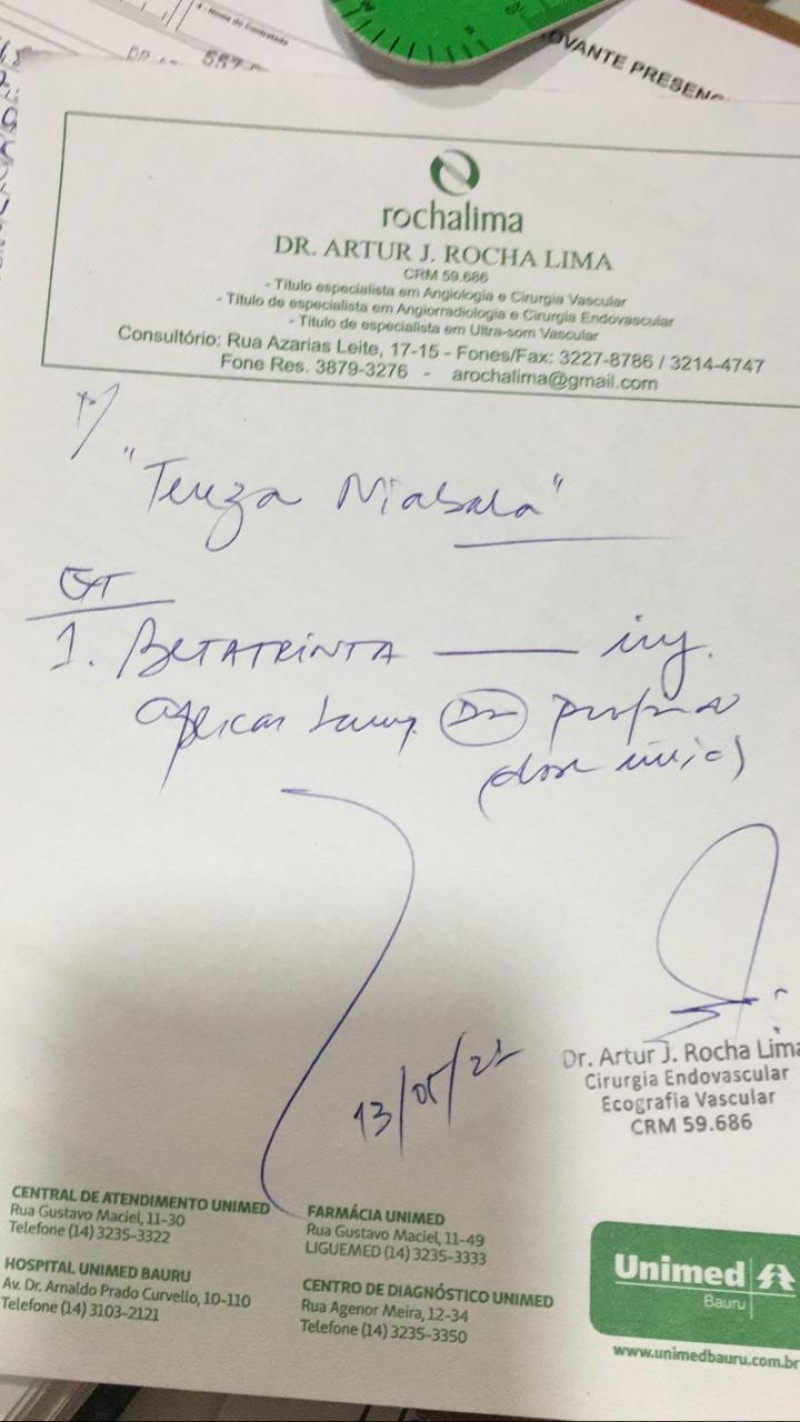 4 - Nome do Contratado
OVANTE PRESENÇ
rochalima
DR. ARTUR J. ROCHA LIMA
CRM 59.686
- Título especialista em Angiologia e Cirurgia Vascular
- Título de especialista em Angiorradiologia e Cirurgia Endovascular
- Título de especialista em Ultra-som Vascular
Consultório: Rua Azarias Leite, 17-15 - Fones/Fax: 3227-8786 / 3214-4747
Fone Res. 3879-3276 - arochalima@gmail.com
P/
"Tereza
1. BETATRINTA inj.
Aplicar IM profundo
(dose única)
13/05/22
Dr. Artur J. Rocha Lima
Cirurgia Endovascular
Ecografia Vascular
CRM 59.686
CENTRAL DE ATENDIMENTO UNIMED
Rua Gustavo Maciel, 11-30
Telefone (14) 3235-3322
HOSPITAL UNIMED BAURU
Av. Dr. Arnaldo Prado Curvello, 10-110
Telefone (14) 3103-2121
FARMÁCIA UNIMED
Rua Gustavo Maciel, 11-49
LIGUEMED (14) 3235-3333
CENTRO DE DIAGNÓSTICO UNIMED
Rua Agenor Meira, 12-34
Telefone (14) 3235-3350
Unimed
Bauru
www.unimedbauru.com.br